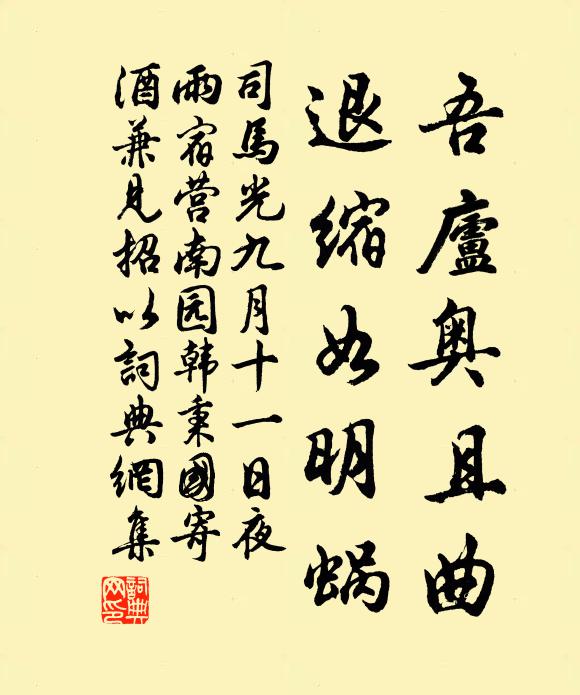 吾廬奧且曲
退缩如明蜗
司馬光九月十一日夜
雨宿营南园韩秉國寄
酒兼見招以詞典網集
詞典
网印